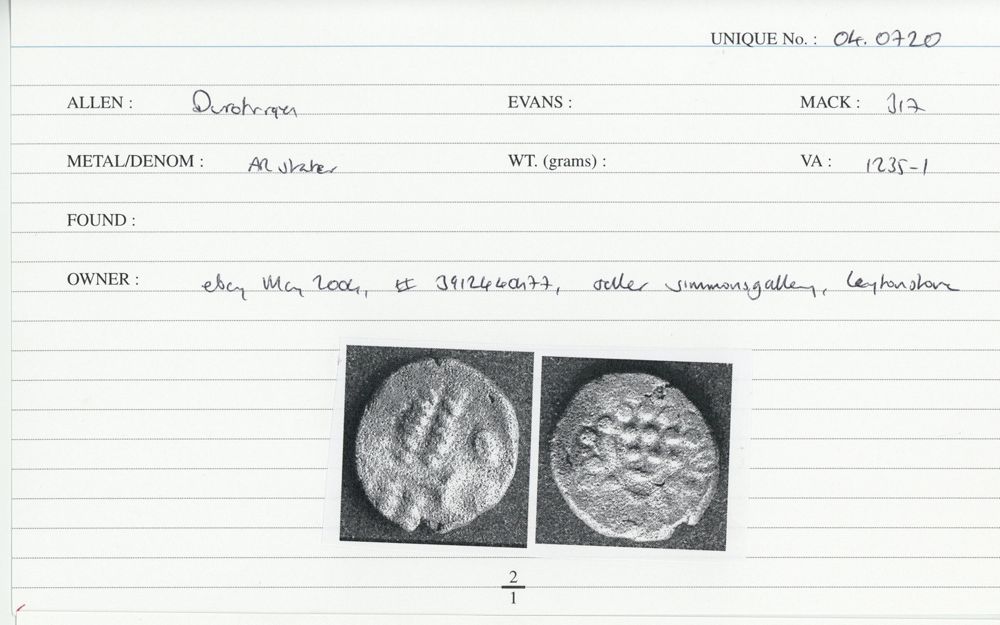 UNIQUE No. : 04.0720
ALLEN : Durotriges EVANS : MACK : 317
METAL/DENOM : AR stater WT. (grams) : VA : 1235-1
FOUND :
OWNER : ebay May 2004, # 3912440477, seller simmonsgallery, Leytonstone
2
1